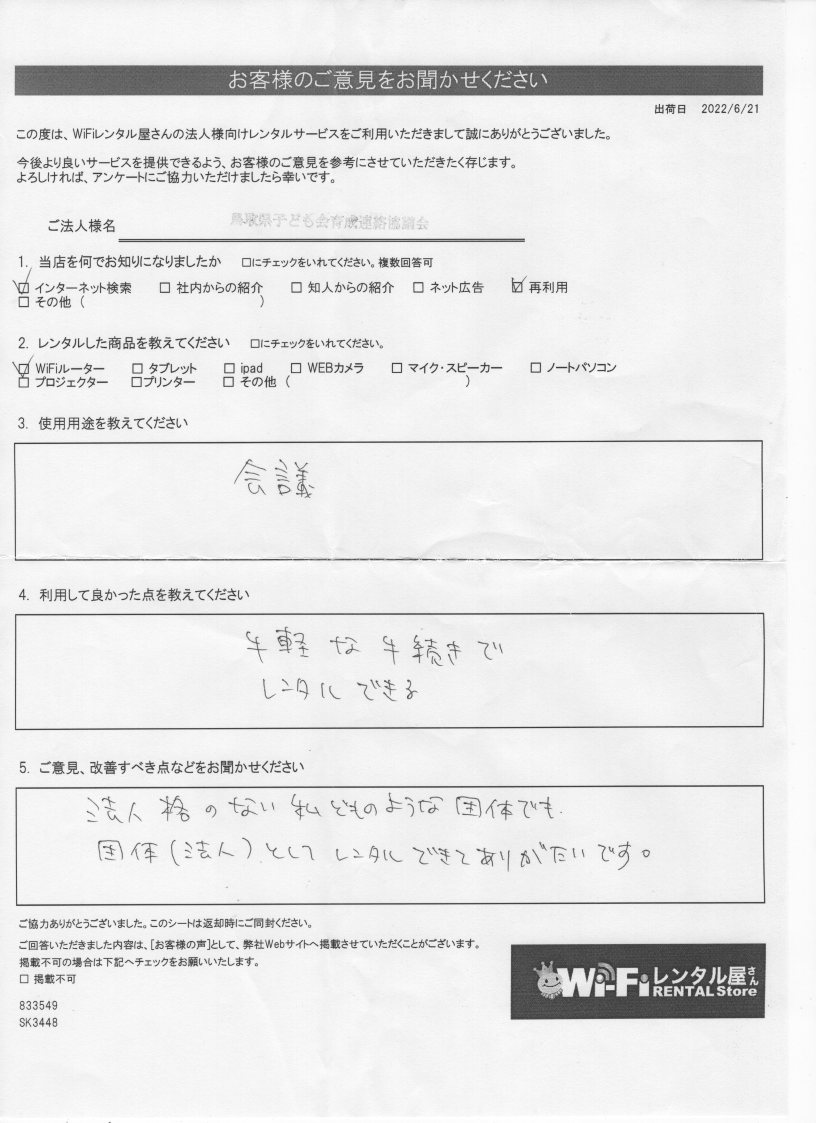 お客様のご意見をお聞かせください
出荷日 2022/6/21
この度は、WiFiレンタル屋さんの法人様向けレンタルサービスをご利用いただきまして誠にありがとうございました。
今後より良いサービスを提供できるよう、お客様のご意見を参考にさせていただきたく存じます。
よろしければ、アンケートにご協力いただけましたら幸いです。
ご法人様名 鳥取県子ども会育成連絡協議会
1. 当店を何でお知りになりましたか □にチェックをいれてください。複数回答可
☑ インターネット検索 □ 社内からの紹介 □ 知人からの紹介 □ ネット広告 ☑ 再利用
□ その他 ( )
2. レンタルした商品を教えてください □にチェックをいれてください。
☑ WiFiルーター □ タブレット □ ipad □ WEBカメラ □ マイク・スピーカー □ ノートパソコン
□ プロジェクター □プリンター □ その他 ( )
3. 使用用途を教えてください
会議
4. 利用して良かった点を教えてください
手軽な手続きで
レンタルできる
5. ご意見、改善すべき点などをお聞かせください
法人格のない私どものような団体でも
団体(法人)としてレンタルできてありがたいです。
ご協力ありがとうございました。このシートは返却時にご同封ください。
ご回答いただきました内容は、[お客様の声]として、弊社Webサイトへ掲載させていただくことがございます。
掲載不可の場合は下記へチェックをお願いいたします。
□ 掲載不可
833549
SK3448
Wi-Fiレンタル屋さん
RENTAL Store